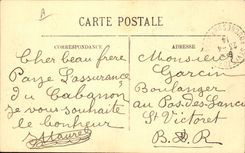 CARTE POSTALE
CORRESPONDANCE
ADRESSE
Cher beau frère
Paye l'assurance
du Cabanon
je vous souhaite
le bonheur
Maurel
Monsieur
Garcin
Boulanger
au Pas des Lanciers
St Victoret
B.D.R